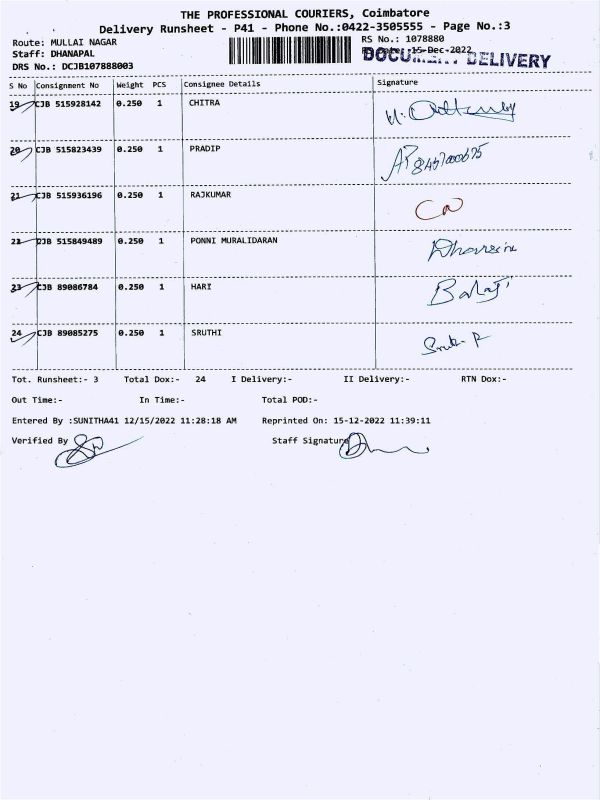 THE PROFESSIONAL COURIERS, Coimbatore
Delivery Runsheet - P41 - Phone No.:0422-3505555 - Page No.:3
Route: MULLAI NAGAR RS No.: 1078880
Staff: DHANAPAL 15-Dec-2022 DELIVERY
DRS No.: DCJB107888003
S No Consignment No Weight PCS Consignee Details Signature
19 CJB 515928142 0.250 1 CHITRA
20 CJB 515823439 0.250 1 PRADIP
21 CJB 515936196 0.250 1 RAJKUMAR
22 CJB 515849489 0.250 1 PONNI MURALIDARAN
23 CJB 89086784 0.250 1 HARI Balaji
24 CJB 89085275 0.250 1 SRUTHI
Tot. Runsheet:- 3 Total Dox:- 24 I Delivery:- II Delivery:- RTN Dox:-
Out Time:- In Time:- Total POD:-
Entered By :SUNITHA41 12/15/2022 11:28:18 AM Reprinted On: 15-12-2022 11:39:11
Verified By Staff Signature